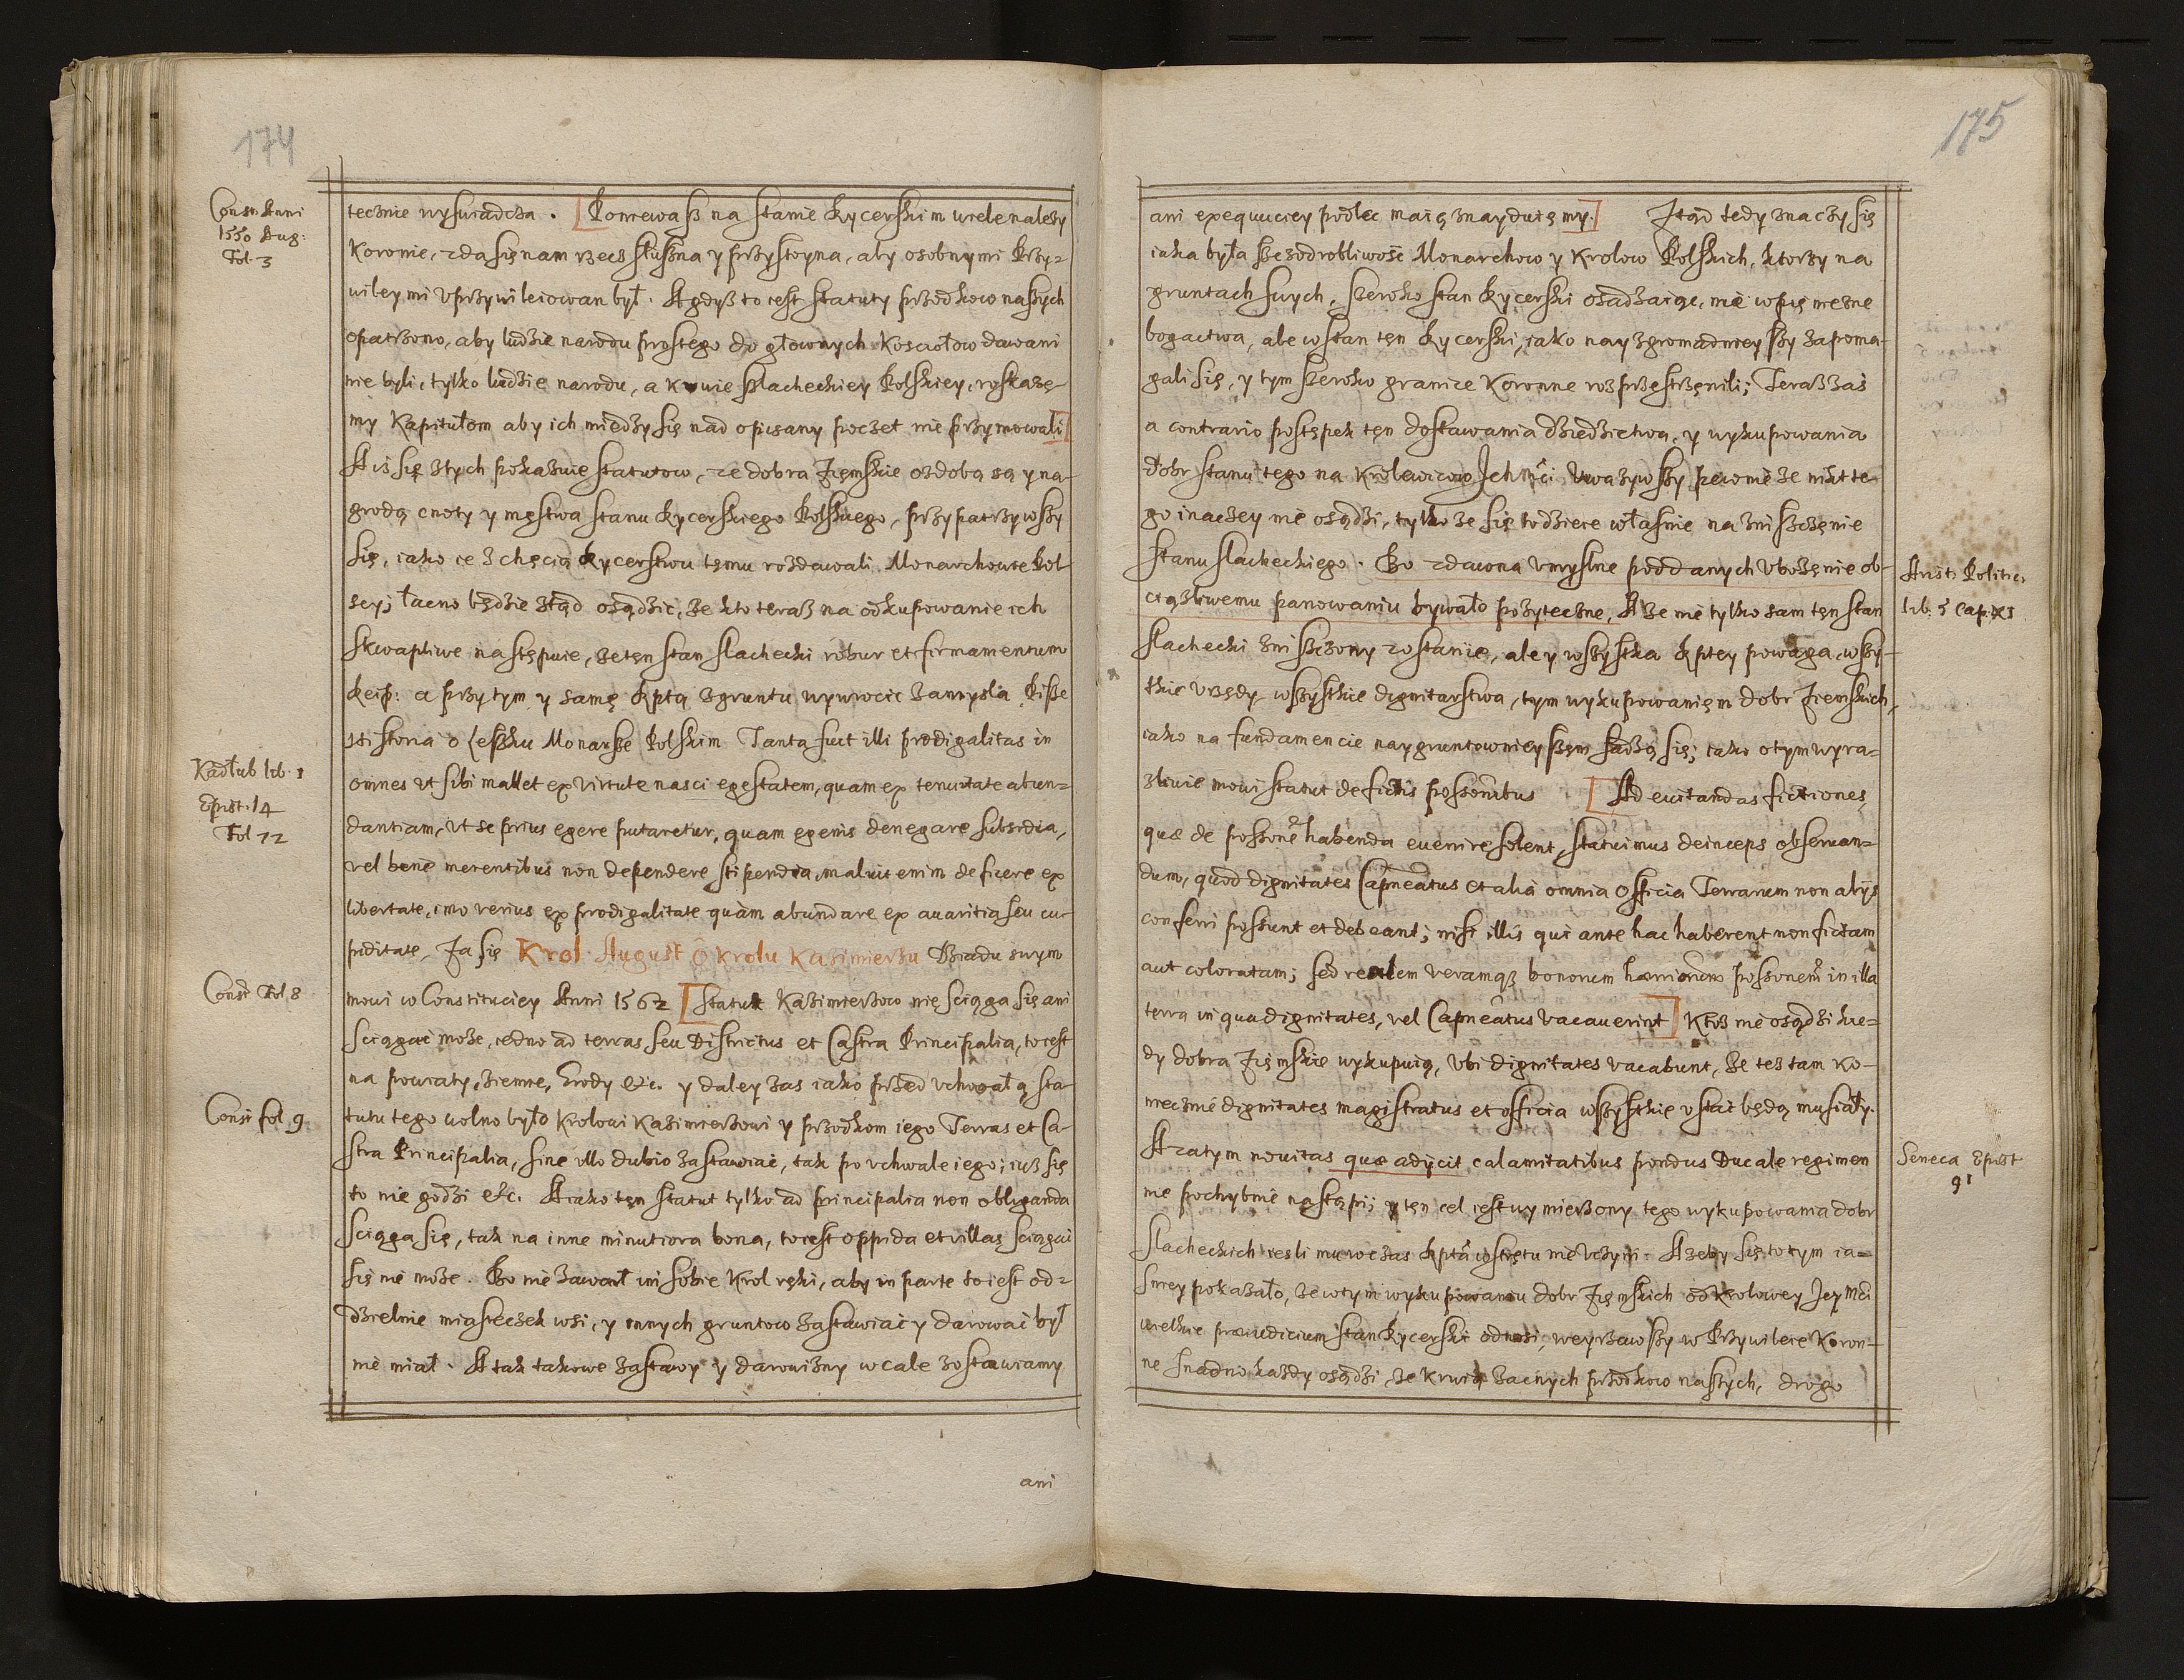 174
Const: Anni
1550 Aug:
Fol. 3
tecznie wyswiadcza. [Poniewaß na stanie Rycerskim wiele należy
Koronie, zda się nam rzecz słußna y przystoyna, aby osobnymi Przy=
wileymi vprzywileiowan był. A gdyß to iest statuty przodkow naßych
opatrzono, aby ludzie narodu prostego do głownych Kosciołow dawani
nie byli, tylko ludzie narodu, a krwie slacheckiey Polskiey, roskazę-
my Kapitułom aby ich miedzy się nad opisany poczet nie przymowali]
A iż się z tych pokazuie statutow, ze dobra Ziemskie ozdobą są y na-
grodą cnoty y męstwa stanu Rycerskiego Polskiego, przypatrzywßy
się, iako ie z chęcią Rycerstwu temu rozdawali Monarchowie Pol-
scy; łacno będzie ztąd osądzić, że kto teraß na odkupowanie ich
skwapliwe następuie, że ten stan slachecki robur et firmamentum
Reip: a przy tym y samę Rptą z gruntu wywrocic zamysla. Piße
Historia o Leßku Monarße Polskim Tanta fuit illi prodigalitas in
Kadłub lib. 1
Epist. 14
Fol 12
omnes vt sibi mallet ex virtute nasci egestatem, quam ex tenuitate abun=
dantiam, vt se prius egere putaretur, quam egenis denegare subsidia,
vel bene merentibus non dependere stipendia, maluit enim deficere ex
libertate, imo verius ex prodigalitate quàm abundare ex auaritia seu cu-
piditate. Za się Krol August o krolu Kazimierzu Dziadu swym
Const Fol 8
mowi w Constituciey Anni 1562 [Statut Kazimierzow nie sciąga się ani
sciągać może, iedno ad terras seu Districtus et Castra Principalia, to iest
na powiaty, ziemie, Grody etc. y daley zas iako przed vchwałą sta-
Const fol 9
tutu tego wolno było Krolowi Kazimierzowi y przodkom iego Terras et Ca-
stra Principalia, sine vllo dubio zastawiać, tak po vchwale iego; iuß się
to nie godzi etc. A iako ten statut tylko ad principalia non obliganda
sciąga się, tak na inne minutiora bona, to iest oppida et villas sciągać
się nie może. Bo nie zawarł im sobie Krol ręki, aby in parte to iest od=
dzielnie miasteczek wsi, y innych gruntow zastawiać y darować był
nie miał. A tak takowe zastawy y darowizny w cale zostawiamy
ani
175
ani exequuciey podlec maią znayduię my.] Ztąd tedy znaczy się
iaka była ßczodrobliwość Monarchow y Krolow Polskich, ktorzy na
gruntach swych, ßeroko stan Rycerski osadzaiąc, nie w pieniezne
bogactwa, ale w stan ten Rycerski, iako nayzgromadnieyßy zapoma-
gali się, y tym ßeroko granice Koronne rozprzestrzenili; Teraß zaś
a contrario postępek ten dostawania dziedzictwa, y wykupowania
dobr stanu tego na Krolewicow Ich Mci vważywßy pewnie że nikt te-
go inaczey nie osądzi, tylko że się to dzieie własnie na znißczenie
stanu slacheckiego. Bo zdawna vmyslne poddanych vbożenie ob-
Arist: Politic:
lib. 5 cap. XI
ciążliwemu panowaniu bywało pożyteczne. A że nie tylko sam ten stan
slachecki znißczony zostanie, ale y wßystka Rptey powaga, wßy-
tkie vrzędy wßystkie dignitarstwa, tym wykupowaniem dobr Ziemskich,
iako na fundamencie naygruntownieyßem sadzą się; iako o tym wyra=
zliwie mowi statut de fictis possonibus [Ad euitandas fictiones,
quæ de possone habenda euenire solent, statuimus deinceps obseruan=
dum, quòd dignitates Capneatus et alia omnia officia Terrarum non alijs
conferri possunt et debeant; nisi illis qui ante hac haberent non fictam
aut coloratam; sed realem veramq; bonorum possonem in illa
terra in qua dignitates, vel Capneatus vacauerint] Ktoß nie osądzi kie=
dy dobra Ziemskie wykupuią, vbi dignitates vacabunt, że też tam ko-
niecznie dignitates magistratus et officia wßystkie vstać będą musiały.
Seneca Epist
91
A zatym nouitas quæ adijcit calamitatibus pondus Ducale regimen
nie pochybnie nastąpi; y ten cel iest wymierzony tego wykupowania dobr
slacheckich iesli mu wczas Rpta wstrętu nie vczyni. A żeby się to tym ia=
sniey pokazało, że w tym wykupowaniu dobr Ziemskich od Krolowey Jey Mci
wielkie præiudicium stan Rycerski odnosi, weyrzawßy w Przywileie Koron-
ne snadno każdy osądzi, że krwią zacnych przodkow naßych, drogo